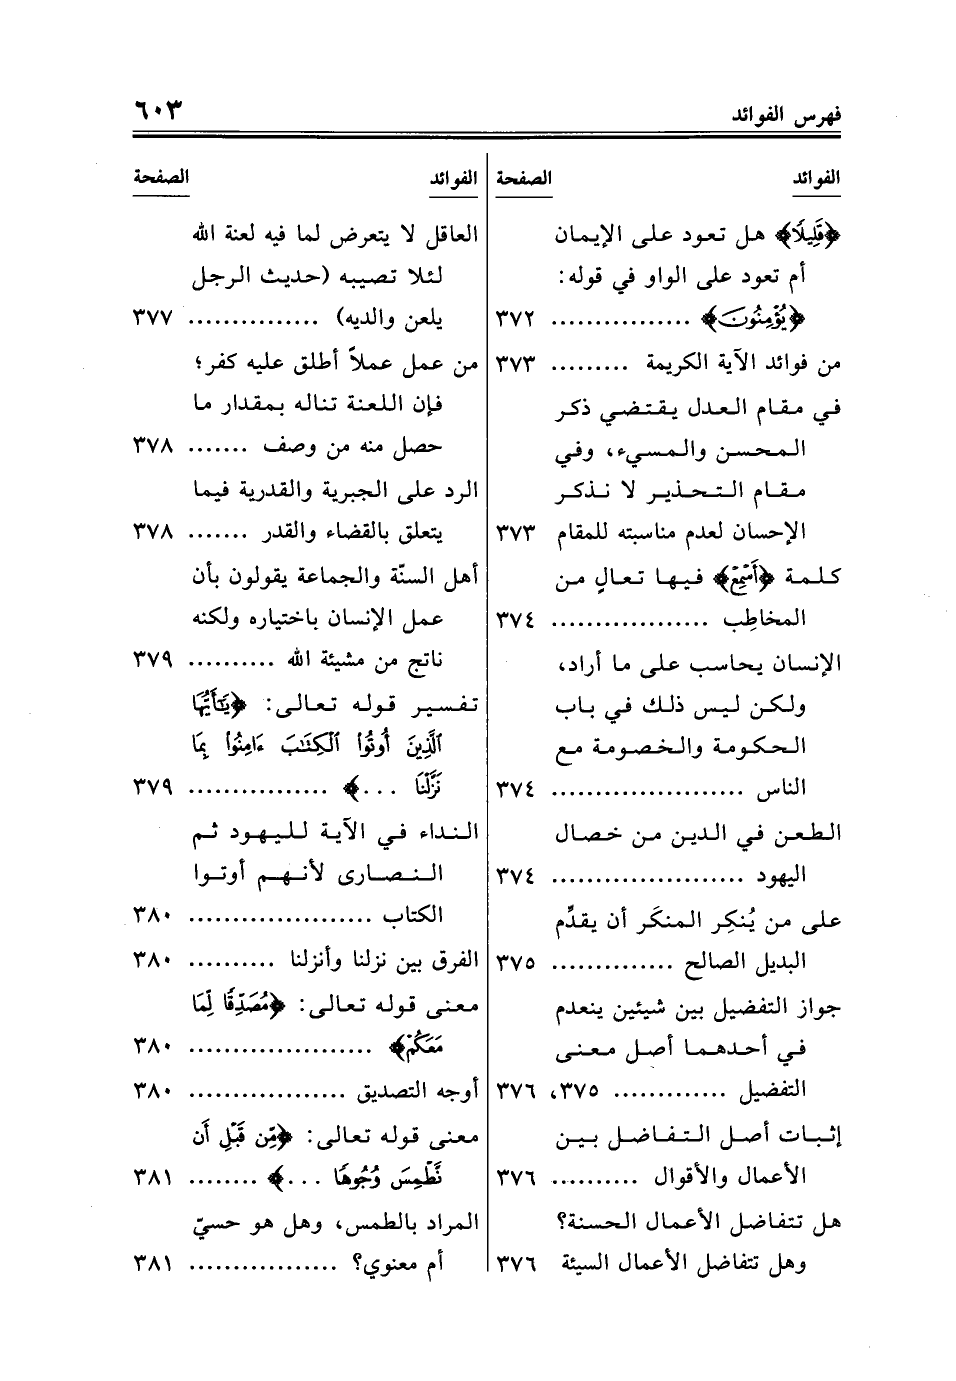 فهرس الفوائد ٦٠٣
الفوائد الصفحة
﴿قَلِيلًا﴾ هل تعود على الإيمان
أم تعود على الواو في قوله:
﴿يُؤْمِنُونَ﴾ ................ ٣٧٢
من فوائد الآية الكريمة ......... ٣٧٣
في مقام العدل يقتضي ذكر
المحسن والمسيء، وفي
مقام التحذير لا نذكر
الإحسان لعدم مناسبته للمقام ٣٧٣
كلمة ﴿أَسْمِعْ﴾ فيها تعالٍ من
المخاطِب .................. ٣٧٤
الإنسان يحاسب على ما أراد،
ولكن ليس ذلك في باب
الحكومة والخصومة مع
الناس ...................... ٣٧٤
الطعن في الدين من خصال
اليهود ...................... ٣٧٤
على من يُنكِر المنكَر أن يقدِّم
البديل الصالح .............. ٣٧٥
جواز التفضيل بين شيئين ينعدم
في أحدهما أصل معنى
التفضيل ............. ٣٧٥، ٣٧٦
إثبات أصل التفاضل بين
الأعمال والأقوال .......... ٣٧٦
هل تتفاضل الأعمال الحسنة؟
وهل تتفاضل الأعمال السيئة ٣٧٦
الفوائد الصفحة
العاقل لا يتعرض لما فيه لعنة الله
لئلا تصيبه (حديث الرجل
يلعن والديه) ............... ٣٧٧
من عمل عملاً أطلق عليه كفر؛
فإن اللعنة تناله بمقدار ما
حصل منه من وصف ....... ٣٧٨
الرد على الجبرية والقدرية فيما
يتعلق بالقضاء والقدر ....... ٣٧٨
أهل السنّة والجماعة يقولون بأن
عمل الإنسان باختياره ولكنه
ناتج من مشيئة الله .......... ٣٧٩
تفسير قوله تعالى: ﴿يَٰٓأَيُّهَا
ٱلَّذِينَ أُوتُوا۟ ٱلْكِتَٰبَ ءَامِنُوا۟ بِمَا
نَزَّلْنَا ...﴾ ................ ٣٧٩
النداء في الآية لليهود ثم
النصارى لأنهم أوتوا
الكتاب ..................... ٣٨٠
الفرق بين نزلنا وأنزلنا .......... ٣٨٠
معنى قوله تعالى: ﴿مُصَدِّقًا لِّمَا
مَعَكُم﴾ ..................... ٣٨٠
أوجه التصديق .................. ٣٨٠
معنى قوله تعالى: ﴿مِّن قَبْلِ أَن
نَّطْمِسَ وُجُوهًا ...﴾ ........ ٣٨١
المراد بالطمس، وهل هو حسيّ
أم معنوي؟ ................. ٣٨١